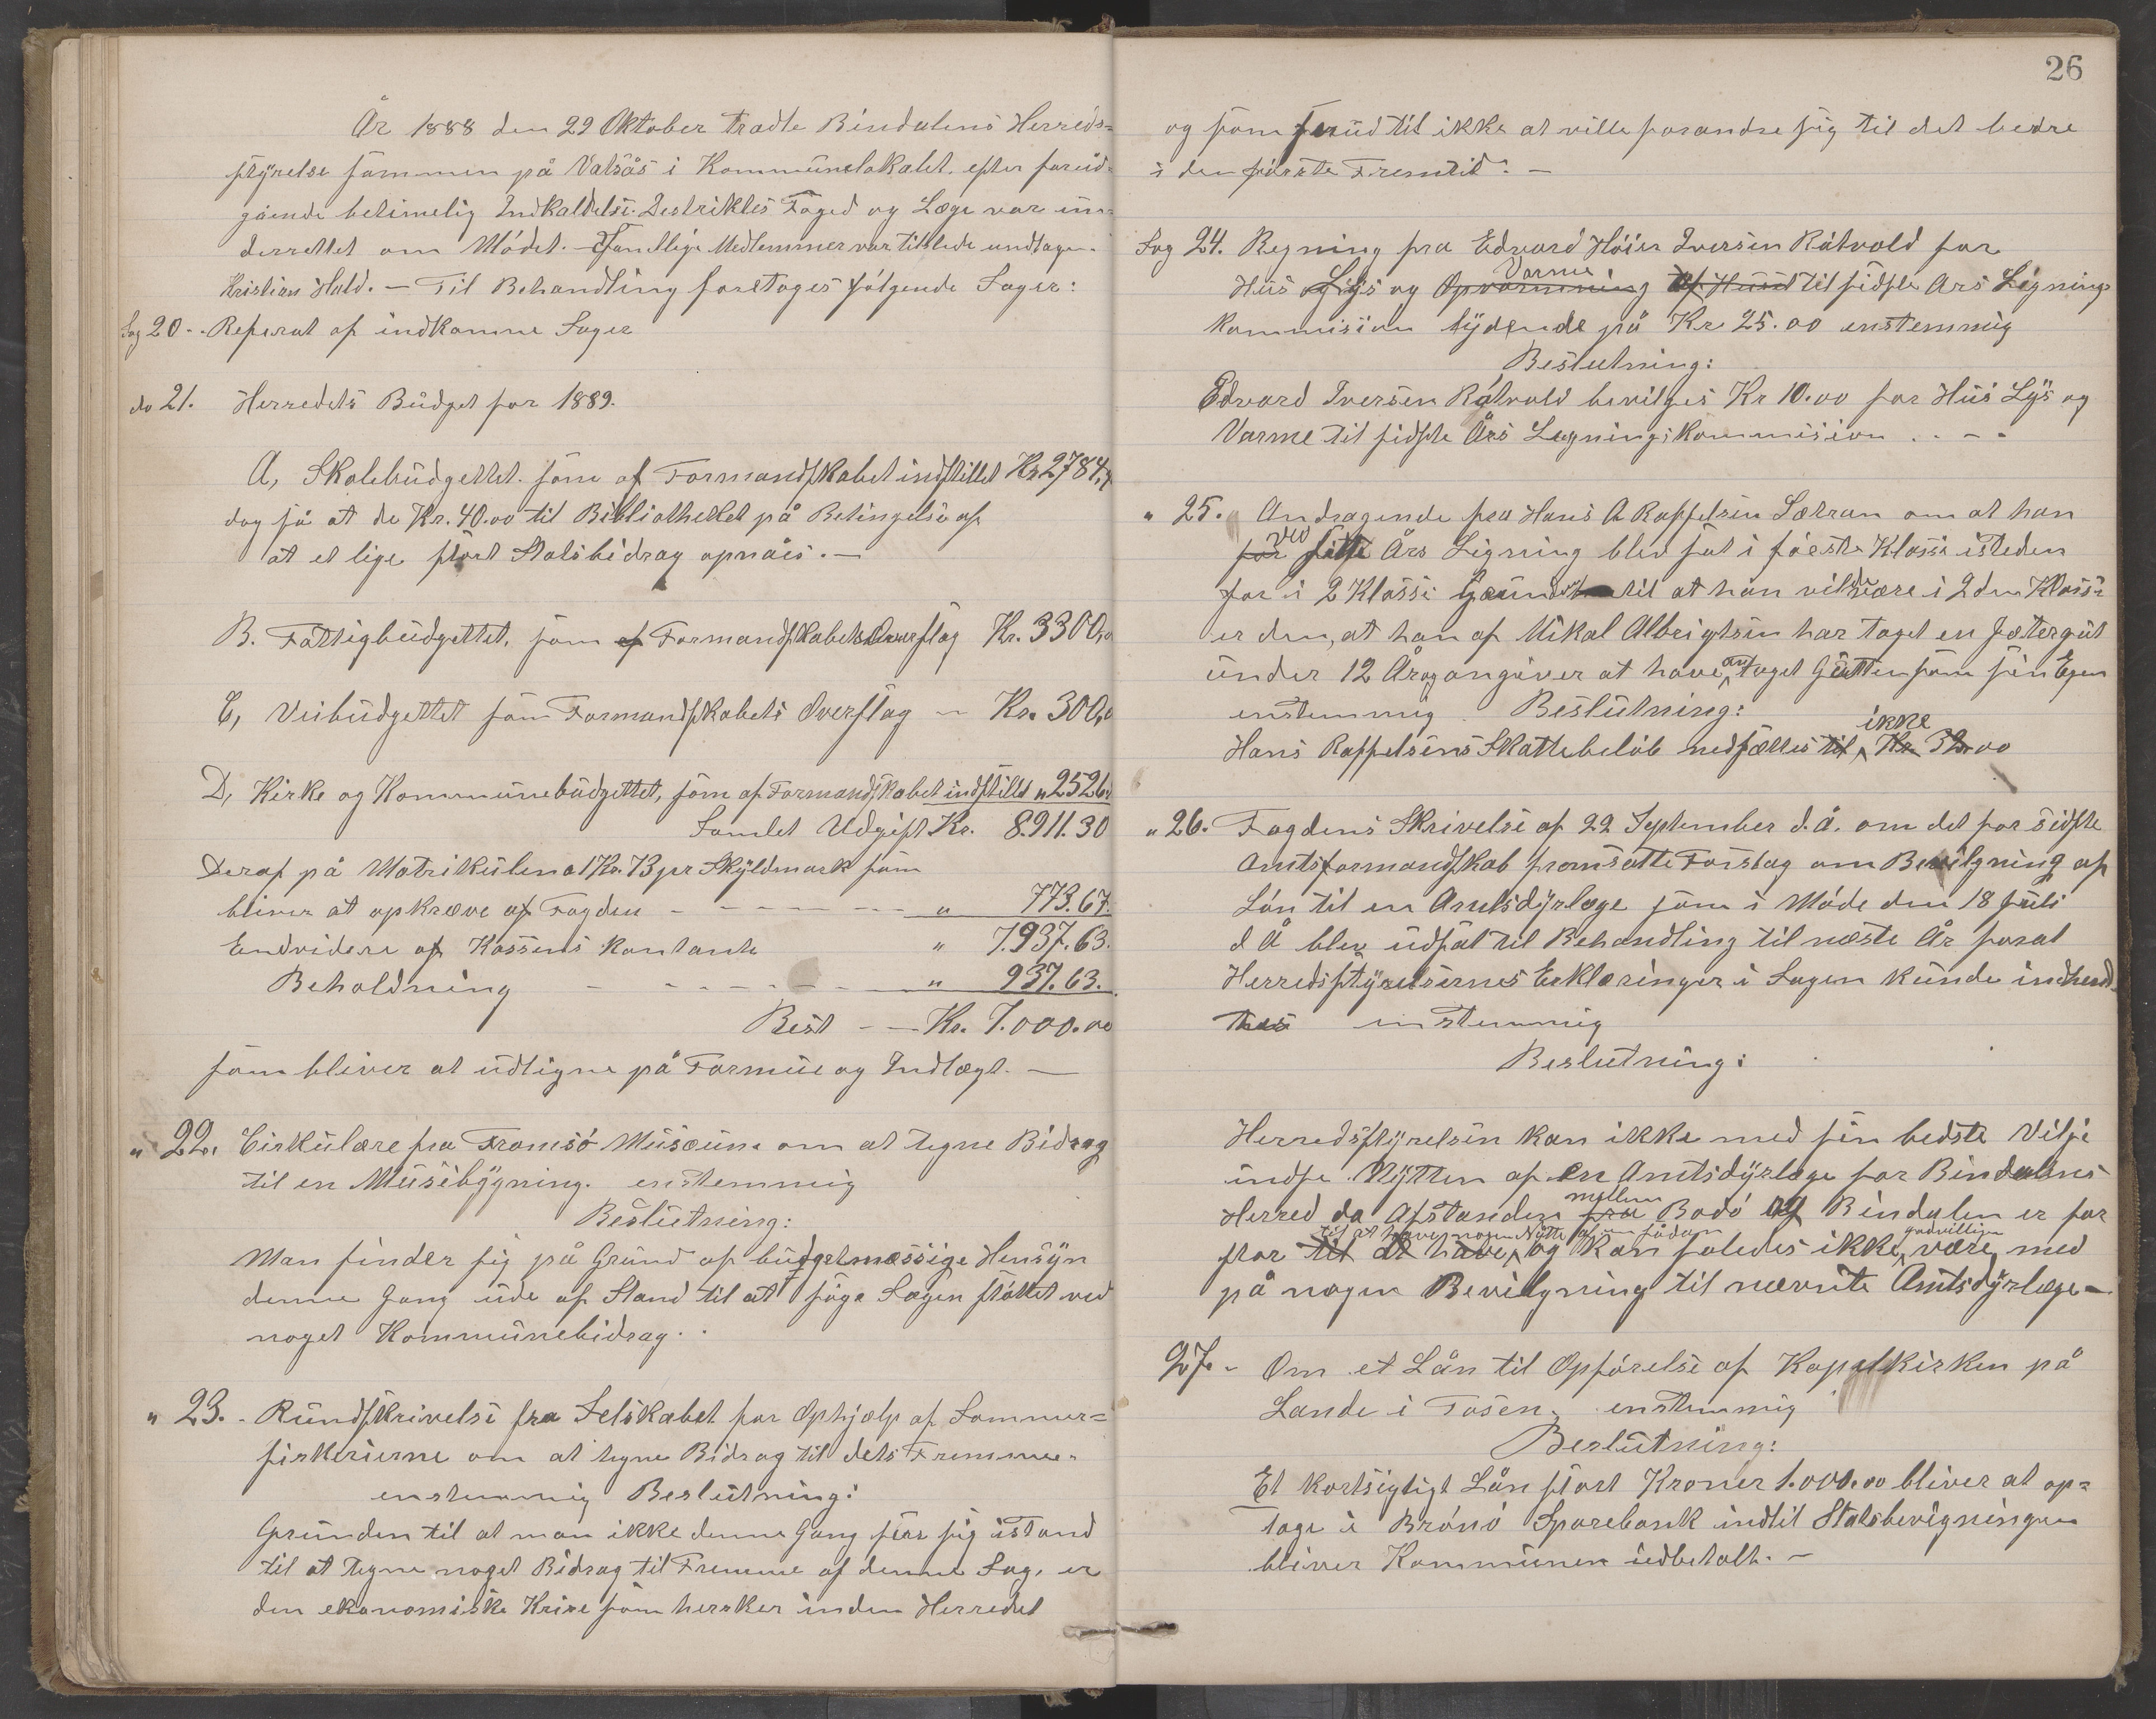 År 1888 den 29 Oktober tradte Bindalens Herreds-
styrelse sammen på Vatsås i Kommunelokalet efter forud-
gående betimelig Indkaldelse. Destriktes Foged og Læge var un-
derrettet om Mödet. - Samtlige Medlemmer var tilstede undtagen
Kristian Hald. - Til Behandling foretoges fölgende Sager:
Sag 20 - Referat af indkomne Sager
do 21. Herredets Budget for 1889.
A, Skolebudgettet som af Formandskabet indstillet Kr 2784,
dog så at de Kr. 40.00 til Bibliotheket på Betingelse af
at et lige stort Statsbidrag opnåes. -
B. Fattigbudgettet, som af Formandskabets Overslag Kr. 3300,
C, Veibudgettet som Formandskabets Overslag - Kr. 300,
D, Kirke og Kommunebudgettet, som af Formandskabet indstillet " 2526
Samlet Udgift Kr. 8.911.30
Deraf på Matrikulen a 1 Kr. 73 pr Skyldmark som
bliver at opkræve af Fogden - - - - " 773.67.
Endvidere af Kassens kontante " 7.937.63.
Beholdning - - - - " 937.63.
Rest - - Kr. 7.000.00
som bliver at udligne på Formue og Indtægt. -
" 22. Cirkulære fra Tromsö Museum om at tegne Bidrag
til en Musebygning. enstemmig
Beslutning:
Man finder sig på Grund af budgetmæssige Hensyn
denne Gang ude af Stand til at söge Sagen stöttet ved
noget Kommunebidrag.
" 23. - Rundskrivelse fra Selskabet for Ophjælp af Sommer-
fiskerierne om at tegne Bidrag til dets Fremme.
enstemmig Beslutning:
Grunden til at man ikke denne Gang ser sig istand
til at tegne noget Bidrag til Fremme af denne Sag, er
den ekonomiske Krise som hersker inden Herredet
26
og som ser ud til ikke at ville forandre sig til det bedre
i den förste Fremtid. -
Sag 24. Regning fra Edvard Höier Iversen Råtvold for
Varme
Hus og Lys og Opvarmning af Huset til sidste Års Ligning
kommision lydende på Kr 25.00 enstemmig
Beslutning:
Edvard Iversen Råtvold bevilges Kr 10.00 for Hus Lys og
Varme til sidste Års Legningskommision . . - -
" 25. Andragende fra Hans A Raffelsen Sætran om at han
ved
for sidste Års Ligning blev sat i förste Klasse isteden
for i 2 Klasse Grunden til at han vilde være i 2den Klasse
er den, at han af Mikal Albrigtsen har taget en Jætergut
an
under 12 År og angiver at have taget Gutten som sin Egen
enstemmig Beslutning:
ikke
Hans Raffelsens Skattebelöb nedsættes til Kr 32.00
" 26. Fogdens Skrivelse af 22 September d. å. om det for sidste
Amtsformandskab fremsatte Forslag om Bevilgning af
Lön til en Amtsdyrlæge som i Möde den 18 Juli
d Å blev udsat til Behandling til næste År forat
Herredsstyrelsernes Erklæringer i Sagen kunde indhend-
tes enstemmig
Beslutning:
Herredsstyrelsen kan ikke med sin bedste Vilje
indse Nytten af en Amtsdyrlæge for Bindalens
mellem
Herred da Afstanden fra Bodö og Bindalen er for
til at have nogen Nytte af en sådan godvillige
stor til at have, og kan saledes ikke være med
på nogen Bevilgning til nævnte Amtsdyrlæge -
27. - Om et Lån til Opförelse af Kapelkirken på
Lande i Tosen, enstemmig
Beslutning:
Et kortsigtigt Lån stort Kroner 1.000.00 bliver at op-
tage i Brönö Sparebank indtil Statsbevigningen
bliver Kommunen udbetalt. -